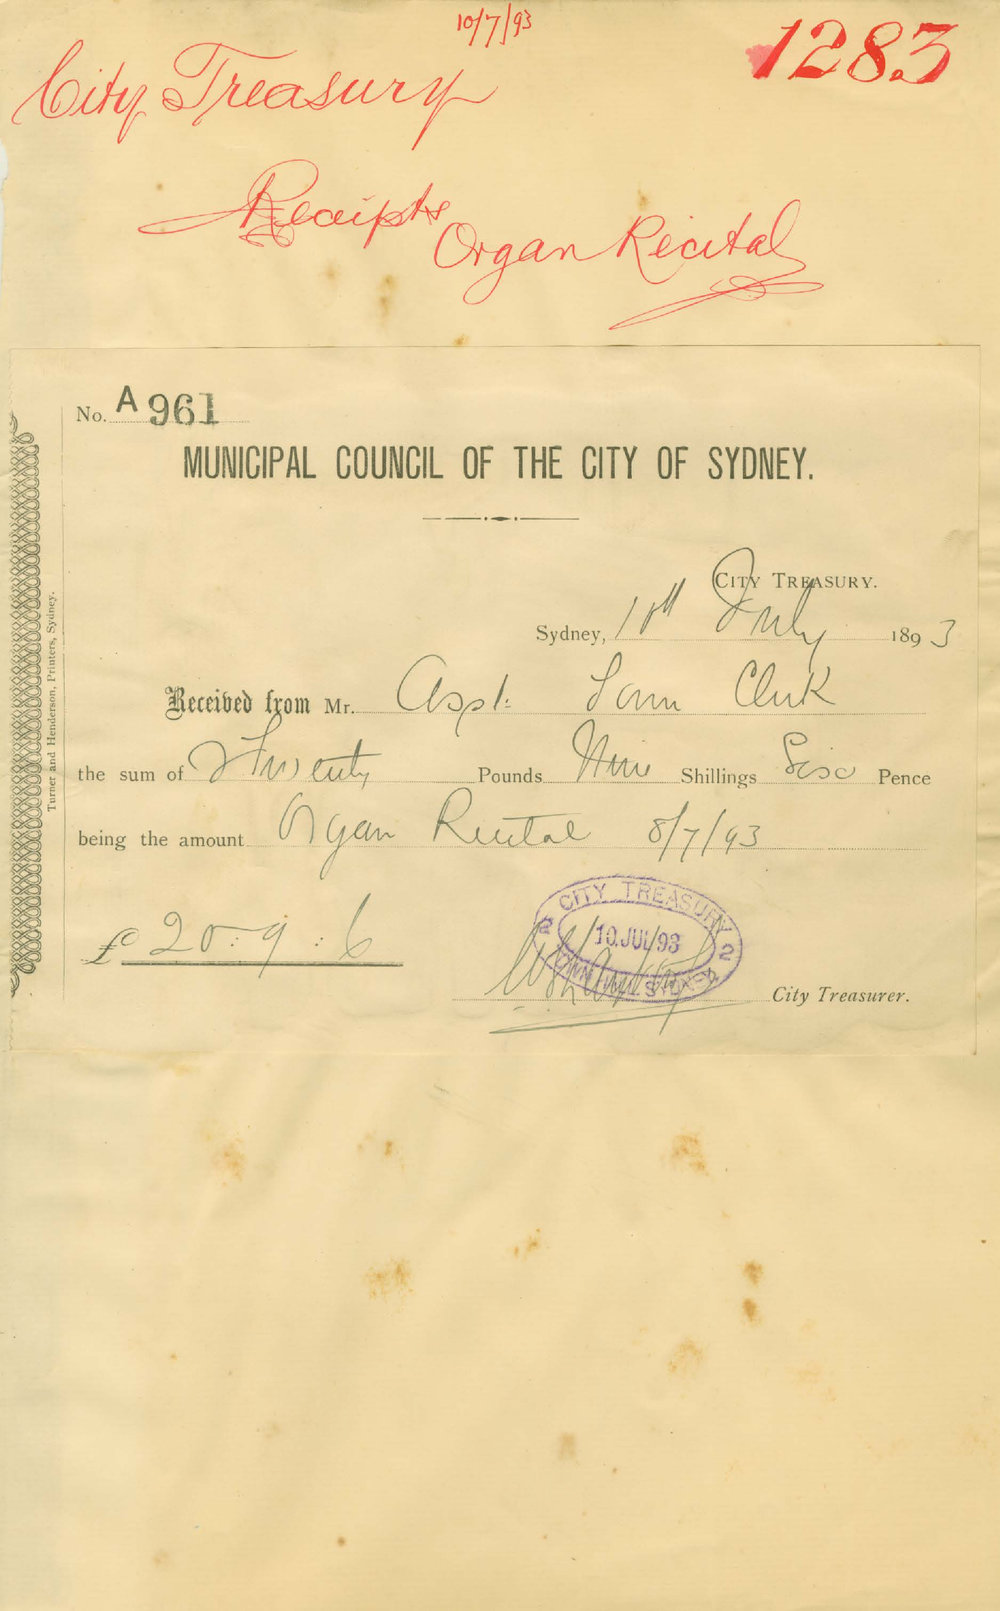 10/7/93
1283
City Treasury
Receipts
Organ Recital
No. A 961
MUNICIPAL COUNCIL OF THE CITY OF SYDNEY.
CITY TREASURY.
Sydney, 10th July 1893
Received from Mr. Asst: Town Clerk
the sum of Twenty Pounds Nine Shillings Six Pence
being the amount Organ Recital 8/7/93
£ 20 : 9 : 6
CITY TREASURY
2 10 JUL 93 2
TOWN HALL SYDNEY
City Treasurer.
Turner and Henderson, Printers, Sydney.